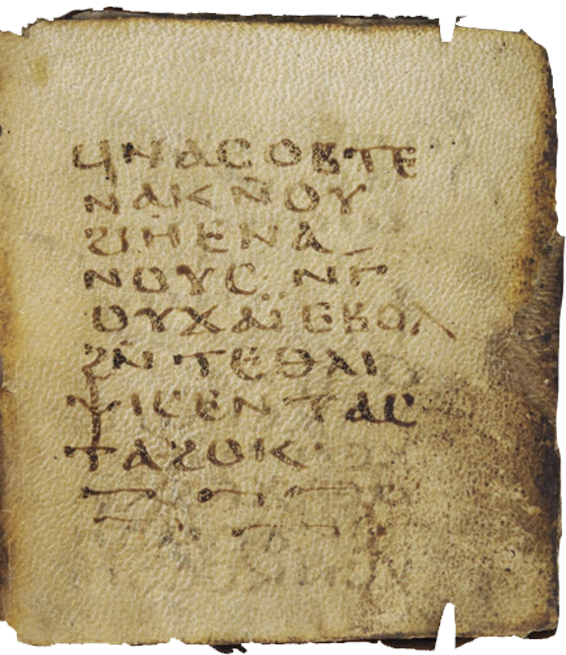 ϥⲛⲁⲥⲟⲃⲧⲉ
ⲛⲁⲕ ⲛ̄ⲟⲩ
ϩⲓⲏ ⲉⲛⲁ
ⲛⲟⲩⲥ· ⲛⲅ̄
ⲟⲩϫⲁⲓ̈ ⲉⲃⲟⲗ
ϩⲛ̄ ⲧⲉⲑⲗⲓ
ⲯⲓⲥ ⲉⲛⲧⲁⲥ
ⲧⲁϩⲟⲕ·